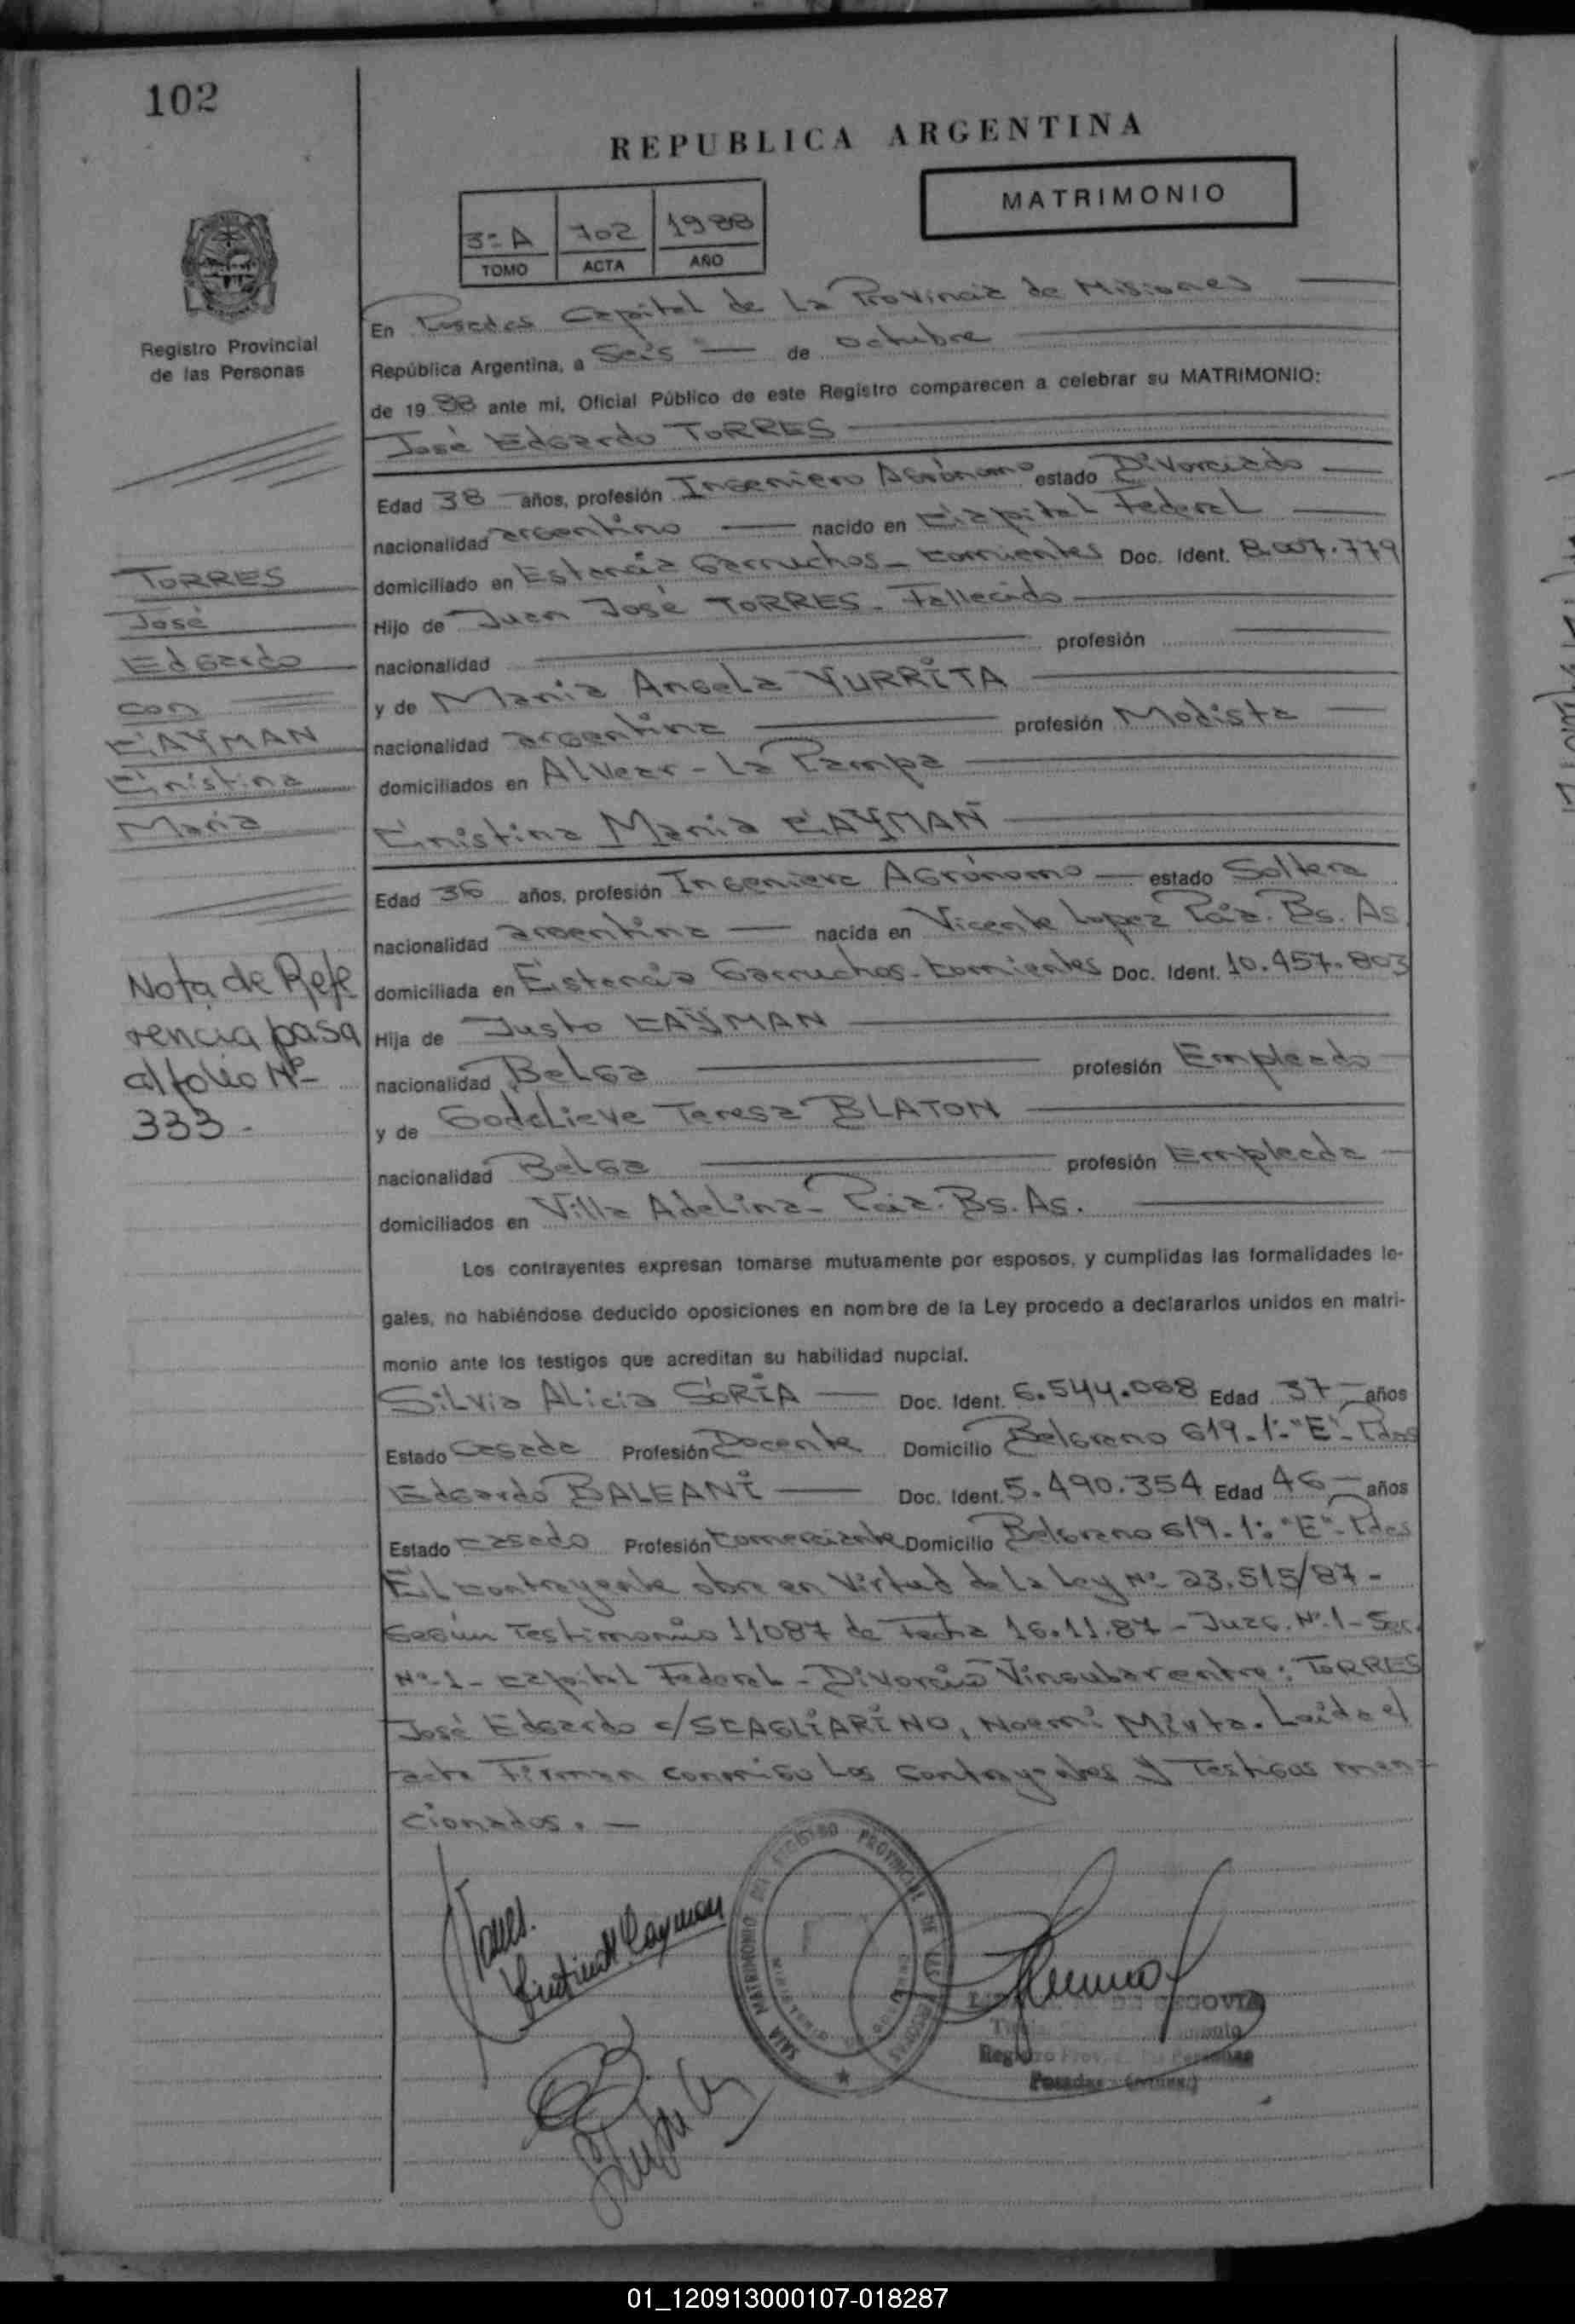 102
REPUBLICA ARGENTINA
MATRIMONIO
3º A 702 1988
TOMO ACTA AÑO
Registro Provincial
de las Personas
En Posadas Capital de La Provincia de Misiones
República Argentina, a Seis de octubre
de 1988 ante mí, Oficial Público de este Registro comparecen a celebrar su MATRIMONIO:
José Edgardo TORRES
Edad 38 años, profesión Ingeniero Agrónomo estado Divorciado
nacionalidad argentino nacido en Capital Federal
domiciliado en Estancia Garruchos - Corrientes Doc. Ident. 8.007.779
Hijo de Juan José TORRES - Fallecido
nacionalidad profesión
y de María Angela YURRITA
nacionalidad argentina profesión Modista
domiciliados en Alvear - La Pampa
Cristina María CAYMAN
Edad 36 años, profesión Ingeniera Agrónomo estado Soltera
nacionalidad argentina nacida en Vicente Lopez Pcia. Bs. As.
domiciliada en Estancia Garruchos - Corrientes Doc. Ident. 10.457.803
Hija de Justo CAYMAN
nacionalidad Belga profesión Empleado
y de Godelieve Teresa BLATON
nacionalidad Belga profesión Empleada
domiciliados en Villa Adelina - Pcia. Bs. As.
Los contrayentes expresan tomarse mutuamente por esposos, y cumplidas las formalidades le-
gales, no habiéndose deducido oposiciones en nombre de la Ley procedo a declararlos unidos en matri-
monio ante los testigos que acreditan su habilidad nupcial.
Silvia Alicia SORIA Doc. Ident. 6.544.068 Edad 37 años
Estado Casada Profesión Docente Domicilio Belgrano 619 - 1: "E" - Pdas
Edgardo BALEANI Doc. Ident. 5.490.354 Edad 46 años
Estado casado Profesión Comerciante Domicilio Belgrano 619 - 1: "E" - Pdas
El contrayente obra en Virtud de la Ley Nº 23.515/87 -
según Testimonio 11087 de Fecha 16.11.87 - Juzg. Nº 1 - Sec.
Nº 1 - Capital Federal - Divorcio Vincular entre: TORRES
José Edgardo c/ SCAGLIARINO, Noemi Mirta. Leída el
acta Firman conmigo Los contrayentes y Testigos men-
cionados. -
TORRES
José
Edgardo
con
CAYMAN
Cristina
María
Nota de Refe
rencia pasa
al folio Nº
333 -
Torres
Cristina M Cayman
SALA MATRIMONIO DEL REGISTRO PROVINCIAL DE LAS PERSONAS
DE SEGOVIA
Registro Prov. de las Personas
Posadas - (Mnes.)
01_120913000107-018287